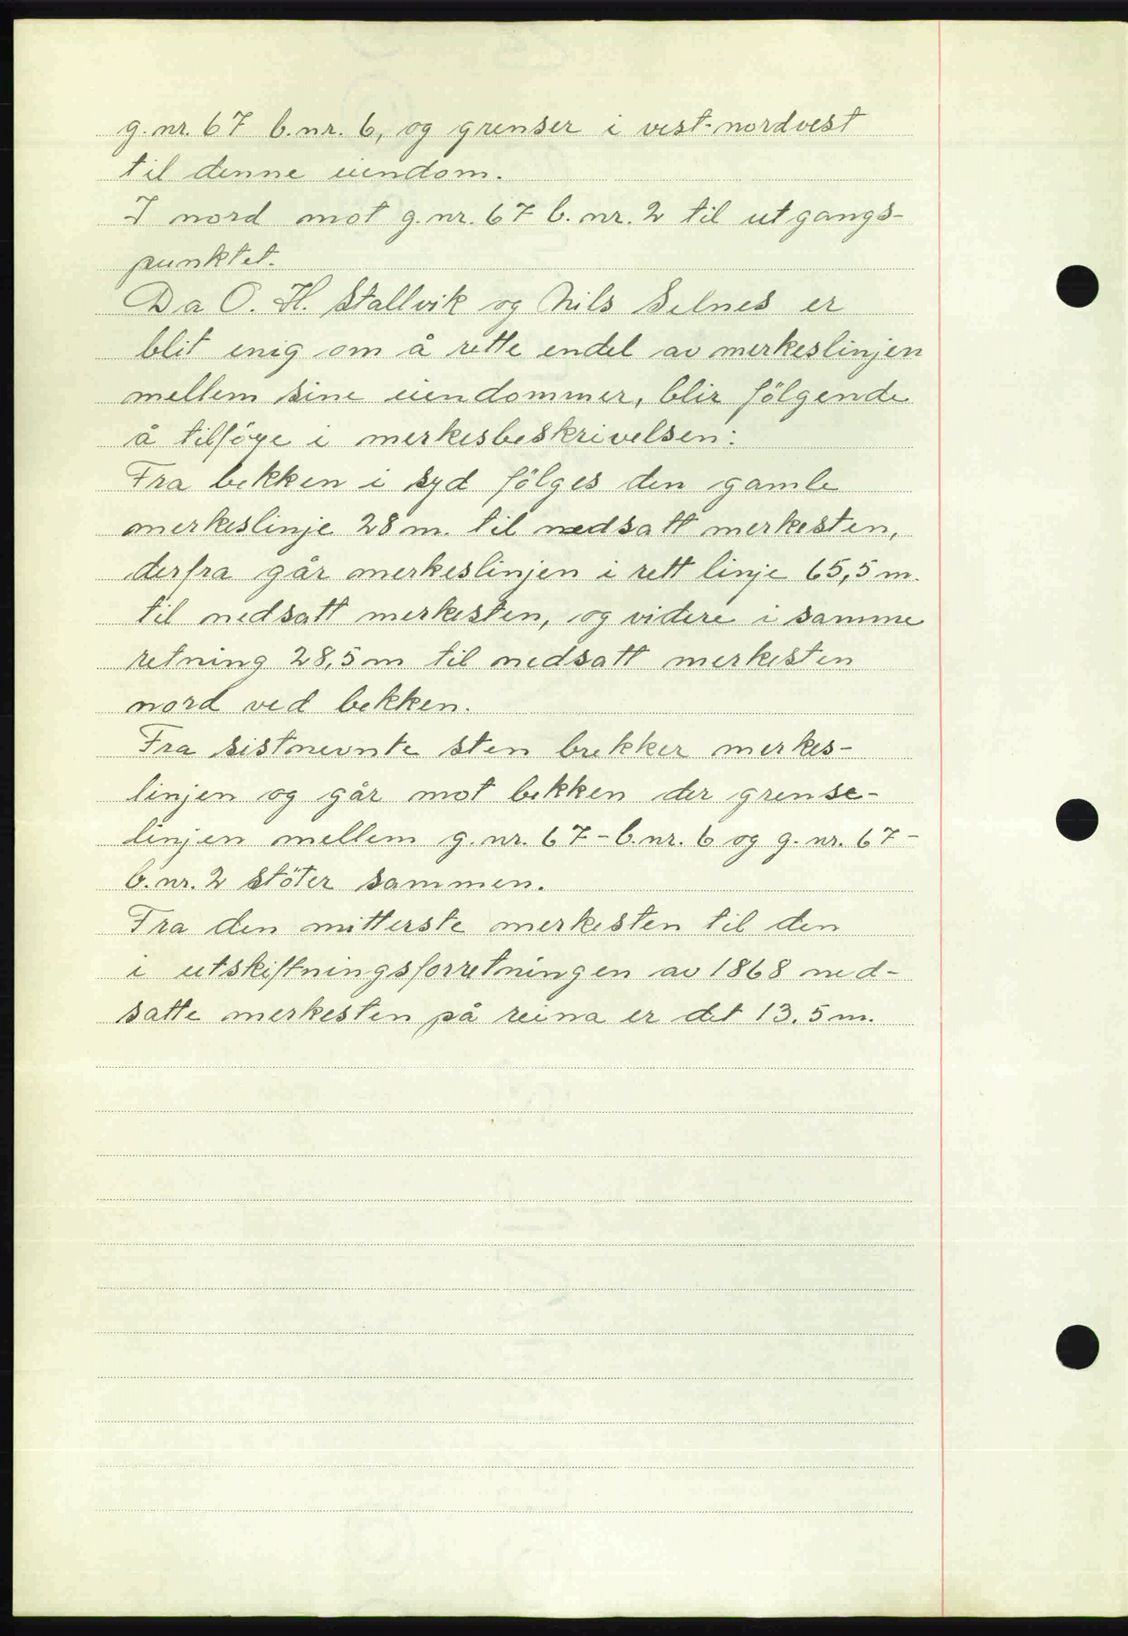 g.nr. 67 b.nr. 6, og grenser i vest-nordvest
til denne eiendom.
I nord mot g.nr. 67 b.nr. 2 til utgangs-
punktet.
Da O. H. Stallvik og Nils Selnes er
blit enig om å rette endel av merkeslinjen
mellem sine eiendommer, blir fölgende
å tilföye i merkesbeskrivelsen:
Fra bekken i syd fölges den gamle
merkeslinje 28 m. til nedsatt merkesten,
derfra går merkeslinjen i rett linje 65,5 m.
til nedsatt merkesten, og videre i samme
retning 28,5 m til nedsatt merkesten
nord ved bekken.
Fra sistnevnte sten brekker merkes-
linjen og går mot bekken der grense-
linjen mellem g.nr. 67 - b.nr. 6 og g.nr. 67 -
b.nr. 2 stöter sammen.
Fra den mitterste merkesten til den
i utskiftningsforretningen av 1868 ned-
satte merkesten på reina er det 13,5 m.